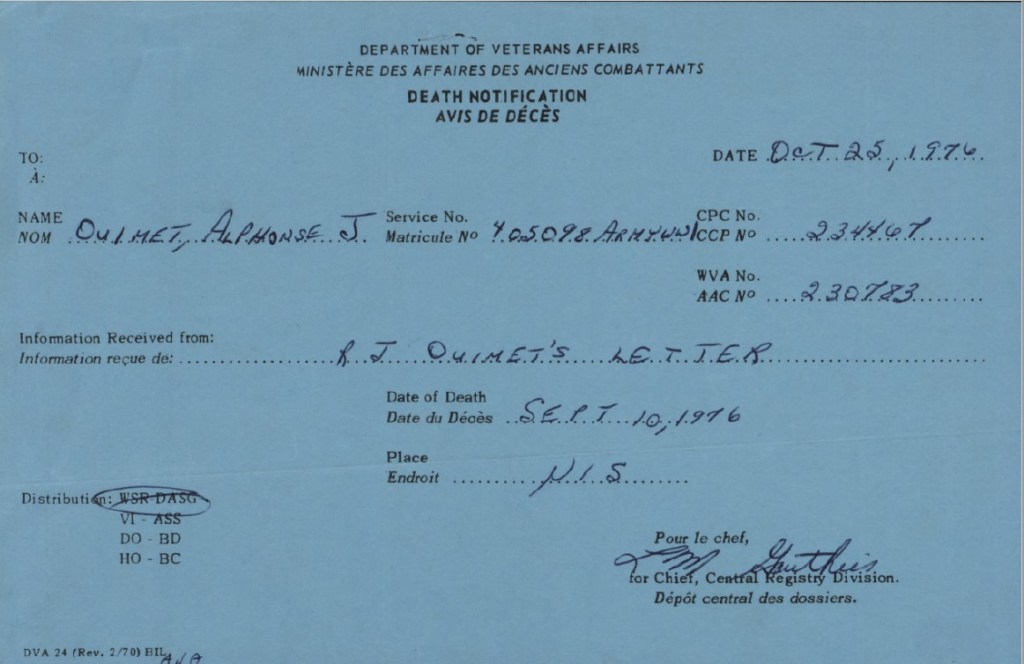 DEPARTMENT OF VETERANS AFFAIRS
MINISTÈRE DES AFFAIRES DES ANCIENS COMBATTANTS
DEATH NOTIFICATION
AVIS DE DÉCÈS
TO:
À:
DATE OCT 25, 1976
NAME
NOM OUIMET, ALPHONSE J
Service No.
Matricule Nº 405098 ARMY WWI
CPC No.
CCP Nº 234467
WVA No.
AAC Nº 230783
Information Received from:
Information reçue de: R J OUIMET'S LETTER
Date of Death
Date du Décès SEPT 10, 1976
Place
Endroit N.I.S
Distribution: WSR DASG
VI - ASS
DO - BD
HO - BC
Pour le chef,
Gauthier
for Chief, Central Registry Division.
Dépôt central des dossiers.
DVA 24 (Rev. 2/70) BIL